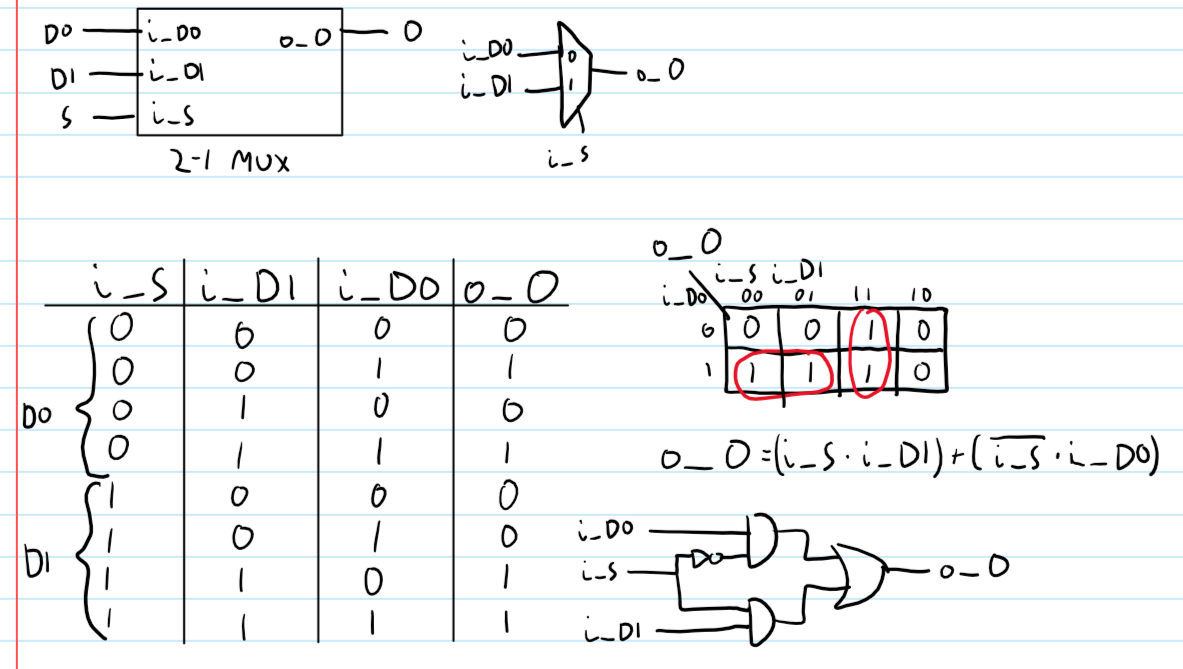 D0 i_D0 o_O O
D1 i_D1
S i_S
2-1 MUX
i_D0 0 o_O
i_D1 1
i_S
i_S i_D1 i_D0 o_O
0 0 0 0
0 0 1 1
D0 0 1 0 0
0 1 1 1
1 0 0 0
1 0 1 0
D1 1 1 0 1
1 1 1 1
o_O
i_S i_D1
i_D0 00 01 11 10
0 0 0 1 0
1 1 1 1 0
o_O=(i_S·i_D1)+(\overline{i_S}·i_D0)
i_D0
i_S o_O
i_D1